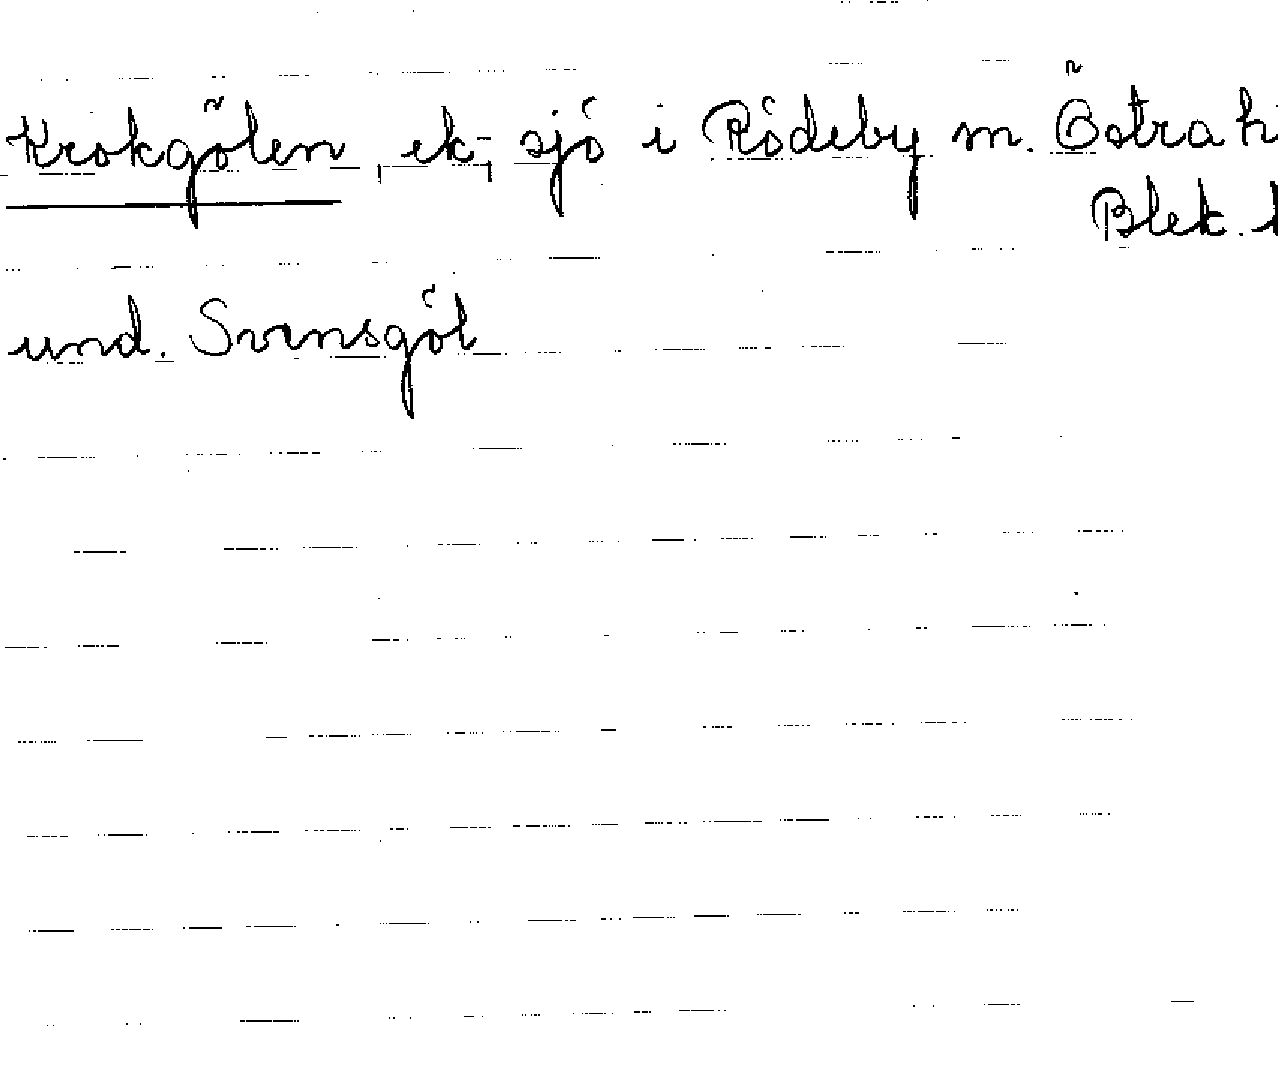 Krokgölen, ek, sjö i Rödeby m. Östra h
Blek. l
und. Svensgöl